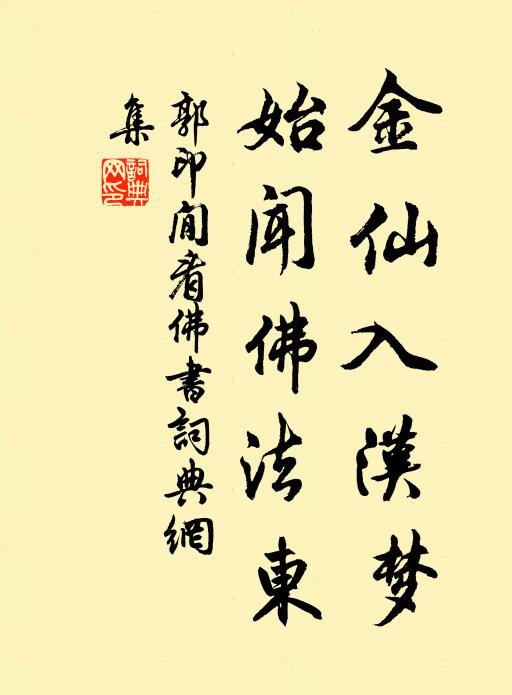 金仙入漢梦
始闻佛法東
郭印閒看佛書詞典網
集
詞典
网印